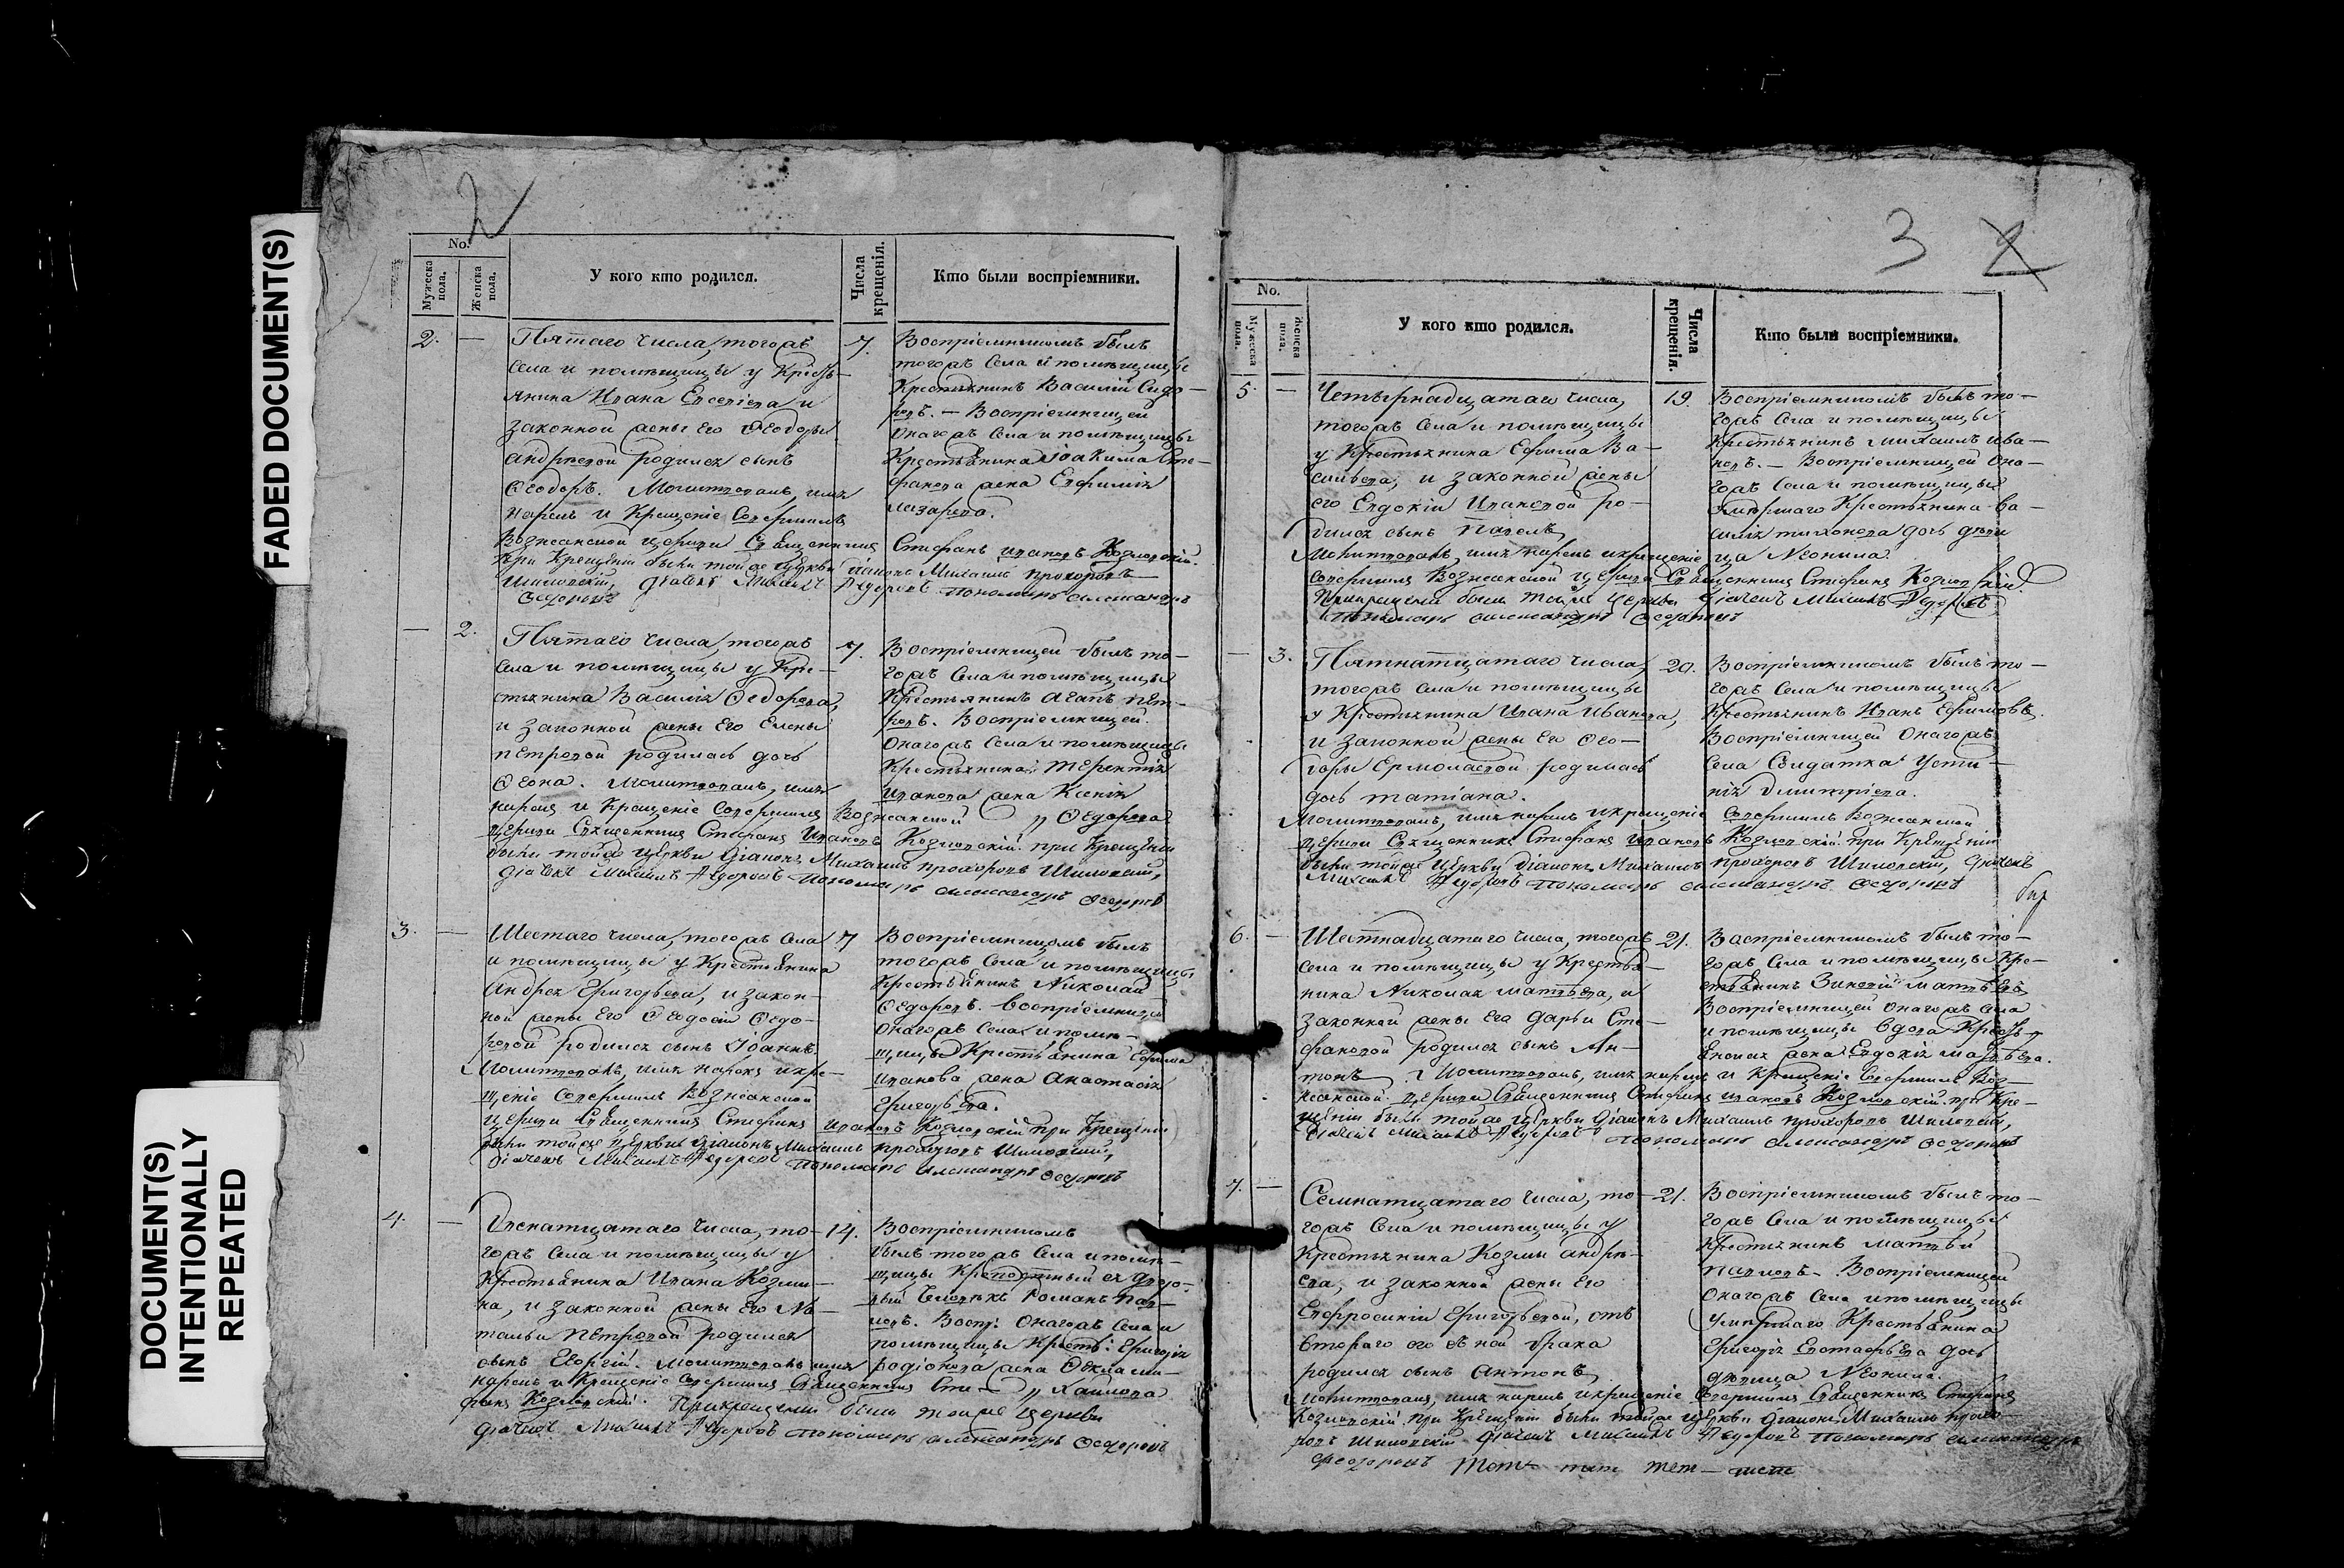 FADED DOCUMENT(S)
DOCUMENT(S)
INTENTIONALLY
REPEATED
2
No.
Мужеска пола.
Женска пола.
У кого кто родился.
Числа крещенія.
Кто были воспріемники.
2. —
Пятаго числа, тогожъ
села и помѣщицы у Кресть-
янина Ивана Евсевіева и
законной жены его Ѳеодоры
Андрѣевой родился сынъ
Ѳеодоръ. Молитвовалъ, имя
нарекъ и крещеніе совершилъ
Вознесенской церкви Священникъ Стефанъ Ивановъ Козловскій.
При крещеніи были тойже церкви діаконъ Михаилъ Прохоровъ
Шиловскій, дьячекъ Михаилъ Ѳедоровъ пономарь Александръ
Ѳедоровъ
7.
Воспріемникомъ былъ
тогожъ села и помѣщицы
Крестьянинъ Василій Сидо-
ровъ. — Воспріемницей
Онагожъ села и помѣщицы
Крестьянина Іоакима Сте-
фанова жена Евфимія
Лазарева.
— 2.
Пятаго числа, тогожъ
села и помѣщицы у Кре-
стьянина Василія Ѳедорова,
и законной жены его Елены
Петровой родилась дочь
Молитвовалъ, имя
нарекъ и крещеніе совершилъ Вознесенской
церкви Священникъ Стефанъ Ивановъ Козловскій. при крещеніи
были тойже церкви діаконъ Михаилъ Прохоровъ Шиловскій,
дьячекъ Михаилъ Ѳедоровъ пономарь Александръ Ѳедоровъ
7.
Воспріемницей былъ то-
гожъ села и помѣщицы
Крестьянинъ Агапъ Пет-
ровъ. Воспріемницей
Онагожъ села и помѣщицы
Крестьянина Терентія
Иванова жена Ксенія
„ Ѳедорова
3. —
Шестаго числа, тогожъ села
и помѣщицы у Крестьянина
Андрея Григорьева, и закон-
ной жены его Ѳедосіи Ѳедо-
ровой родился сынъ Іоаннъ.
Молитвовалъ, имя нарекъ и кре-
щеніе совершилъ Вознесенской
церкви Священникъ Стефанъ Ивановъ Козловскій при крещеніи
были тойже церкви діаконъ Михаилъ Прохоровъ Шиловскій,
дьячекъ Михаилъ Ѳедоровъ пономарь Александръ Ѳедоровъ
7
Воспріемникомъ былъ
тогожъ села и помѣщицы
Крестьянинъ Николай
Ѳедоровъ. Воспріемница
Онагожъ села и помѣ-
щицы Крестьянина Ефима
Иванова жена Анастасія
Григорьева.
4. —
Двенатцатаго числа, то-
гожъ села и помѣщицы у
Крестьянина Ивана Козми-
на, и законной жены его На-
тальи Петровой родился
сынъ Георгій. Молитвовалъ имя
нарекъ и крещеніе совершилъ Священникъ Сте-
фанъ Козловскій. При крещеніи были тойже церкви
дьячекъ Михаилъ Ѳедоровъ пономарь Александръ Ѳедоровъ
14.
Воспріемникомъ
былъ тогожъ села и помѣ-
щицы Крепостный ея дво-
вый человѣкъ Романъ Пав-
ловъ. Воспр: Онагожъ села и
помѣщицы Крест: Григорія
Родіонова жена Ѳекла
3
2
No.
Мужеска пола.
Женска пола.
У кого кто родился.
Числа крещенія.
Кто были воспріемники.
5 —
Четырнадцатаго числа,
тогожъ села и помѣщицы
у Крестьянина Ефима Ва-
сильева, и законной жены
его Евдокіи Ивановой ро-
дился сынъ Павелъ
Молитвовалъ, имя нарекъ и крещеніе
совершилъ Вознесенской церкви Священникъ Стефанъ Козловскій
При крещеніи были тойже церкви дьячекъ Михаилъ Ѳедоровъ
пономарь Александръ Ѳедоровъ
19.
Воспріемникомъ былъ то-
гожъ села и помѣщицы
Крестьянинъ Михаилъ Ива-
новъ. — Воспріемницей Она-
гожъ села и помѣщицы
умершаго Крестьянина Ва-
силія Тихонова дочь дѣви
ца Неонила.
— 3.
Пятнатцатаго числа,
тогожъ села и помѣщицы
у Крестьянина Ивана Иванова,
и законной жены его Ѳео-
доры Ермолаевой родилась
дочь Татіана.
Молитвовалъ, имя нарекъ и крещеніе совершилъ Вознесенской
церкви Священникъ Стефанъ Ивановъ Козловскій при крещеніи
были тойже церкви діаконъ Михаилъ Прохоровъ Шиловскій, дьячекъ
Михаилъ Ѳедоровъ пономарь Александръ Ѳедоровъ
20.
Воспріемникомъ былъ то-
гожъ села и помѣщицы
Крестьянинъ Иванъ Ефимовъ.
Воспріемницей Онагожъ
села Солдатка Усти-
нія Димитріева.
6. —
Шестнадцатаго числа, тогожъ
села и помѣщицы у Крестья-
нина Николая Матвѣева, и
законной жены его Дарьи Сте-
фановой родился сынъ Ан-
тонъ. Молитвовалъ, имя нарекъ и крещеніе совершилъ Воз-
несенской церкви Священникъ Стефанъ Ивановъ Козловскій. при кре-
щеніи были тойже церкви діаконъ Михаилъ Прохоровъ Шиловскій,
дьячекъ Михаилъ Ѳедоровъ пономарь Александръ Ѳедоровъ
21.
Воспріемникомъ былъ то-
гожъ села и помѣщицы Кре-
стьянинъ Зиновій Матвѣевъ
Воспріемницей Онагожъ села
и помѣщицы вдова Кресть-
янская жена Евдокія Матвѣева.
7. —
Семнатцатаго числа, то-
гожъ села и помѣщицы у
Крестьянина Козмы Андрѣ-
ева, и законной жены его
Евфросиніи Григорьевой, отъ
втораго его съ ней брака
родился сынъ Антонъ
Молитвовалъ, имя нарекъ и крещеніе совершилъ Священникъ Стефанъ
Козловскій при крещеніи были тойже церкви діаконъ Михаилъ Прохо-
ровъ Шиловскій дьячекъ Михаилъ Ѳедоровъ пономарь Александръ
Ѳедоровъ
21.
Воспріемникомъ былъ то-
гожъ села и помѣщицы
Крестьянинъ Матвѣй
Павловъ. Воспріемницей
Онагожъ села и помѣщицы
умершаго Крестьянина
Григорія Евстафьева дочь
дѣвица Неонила.